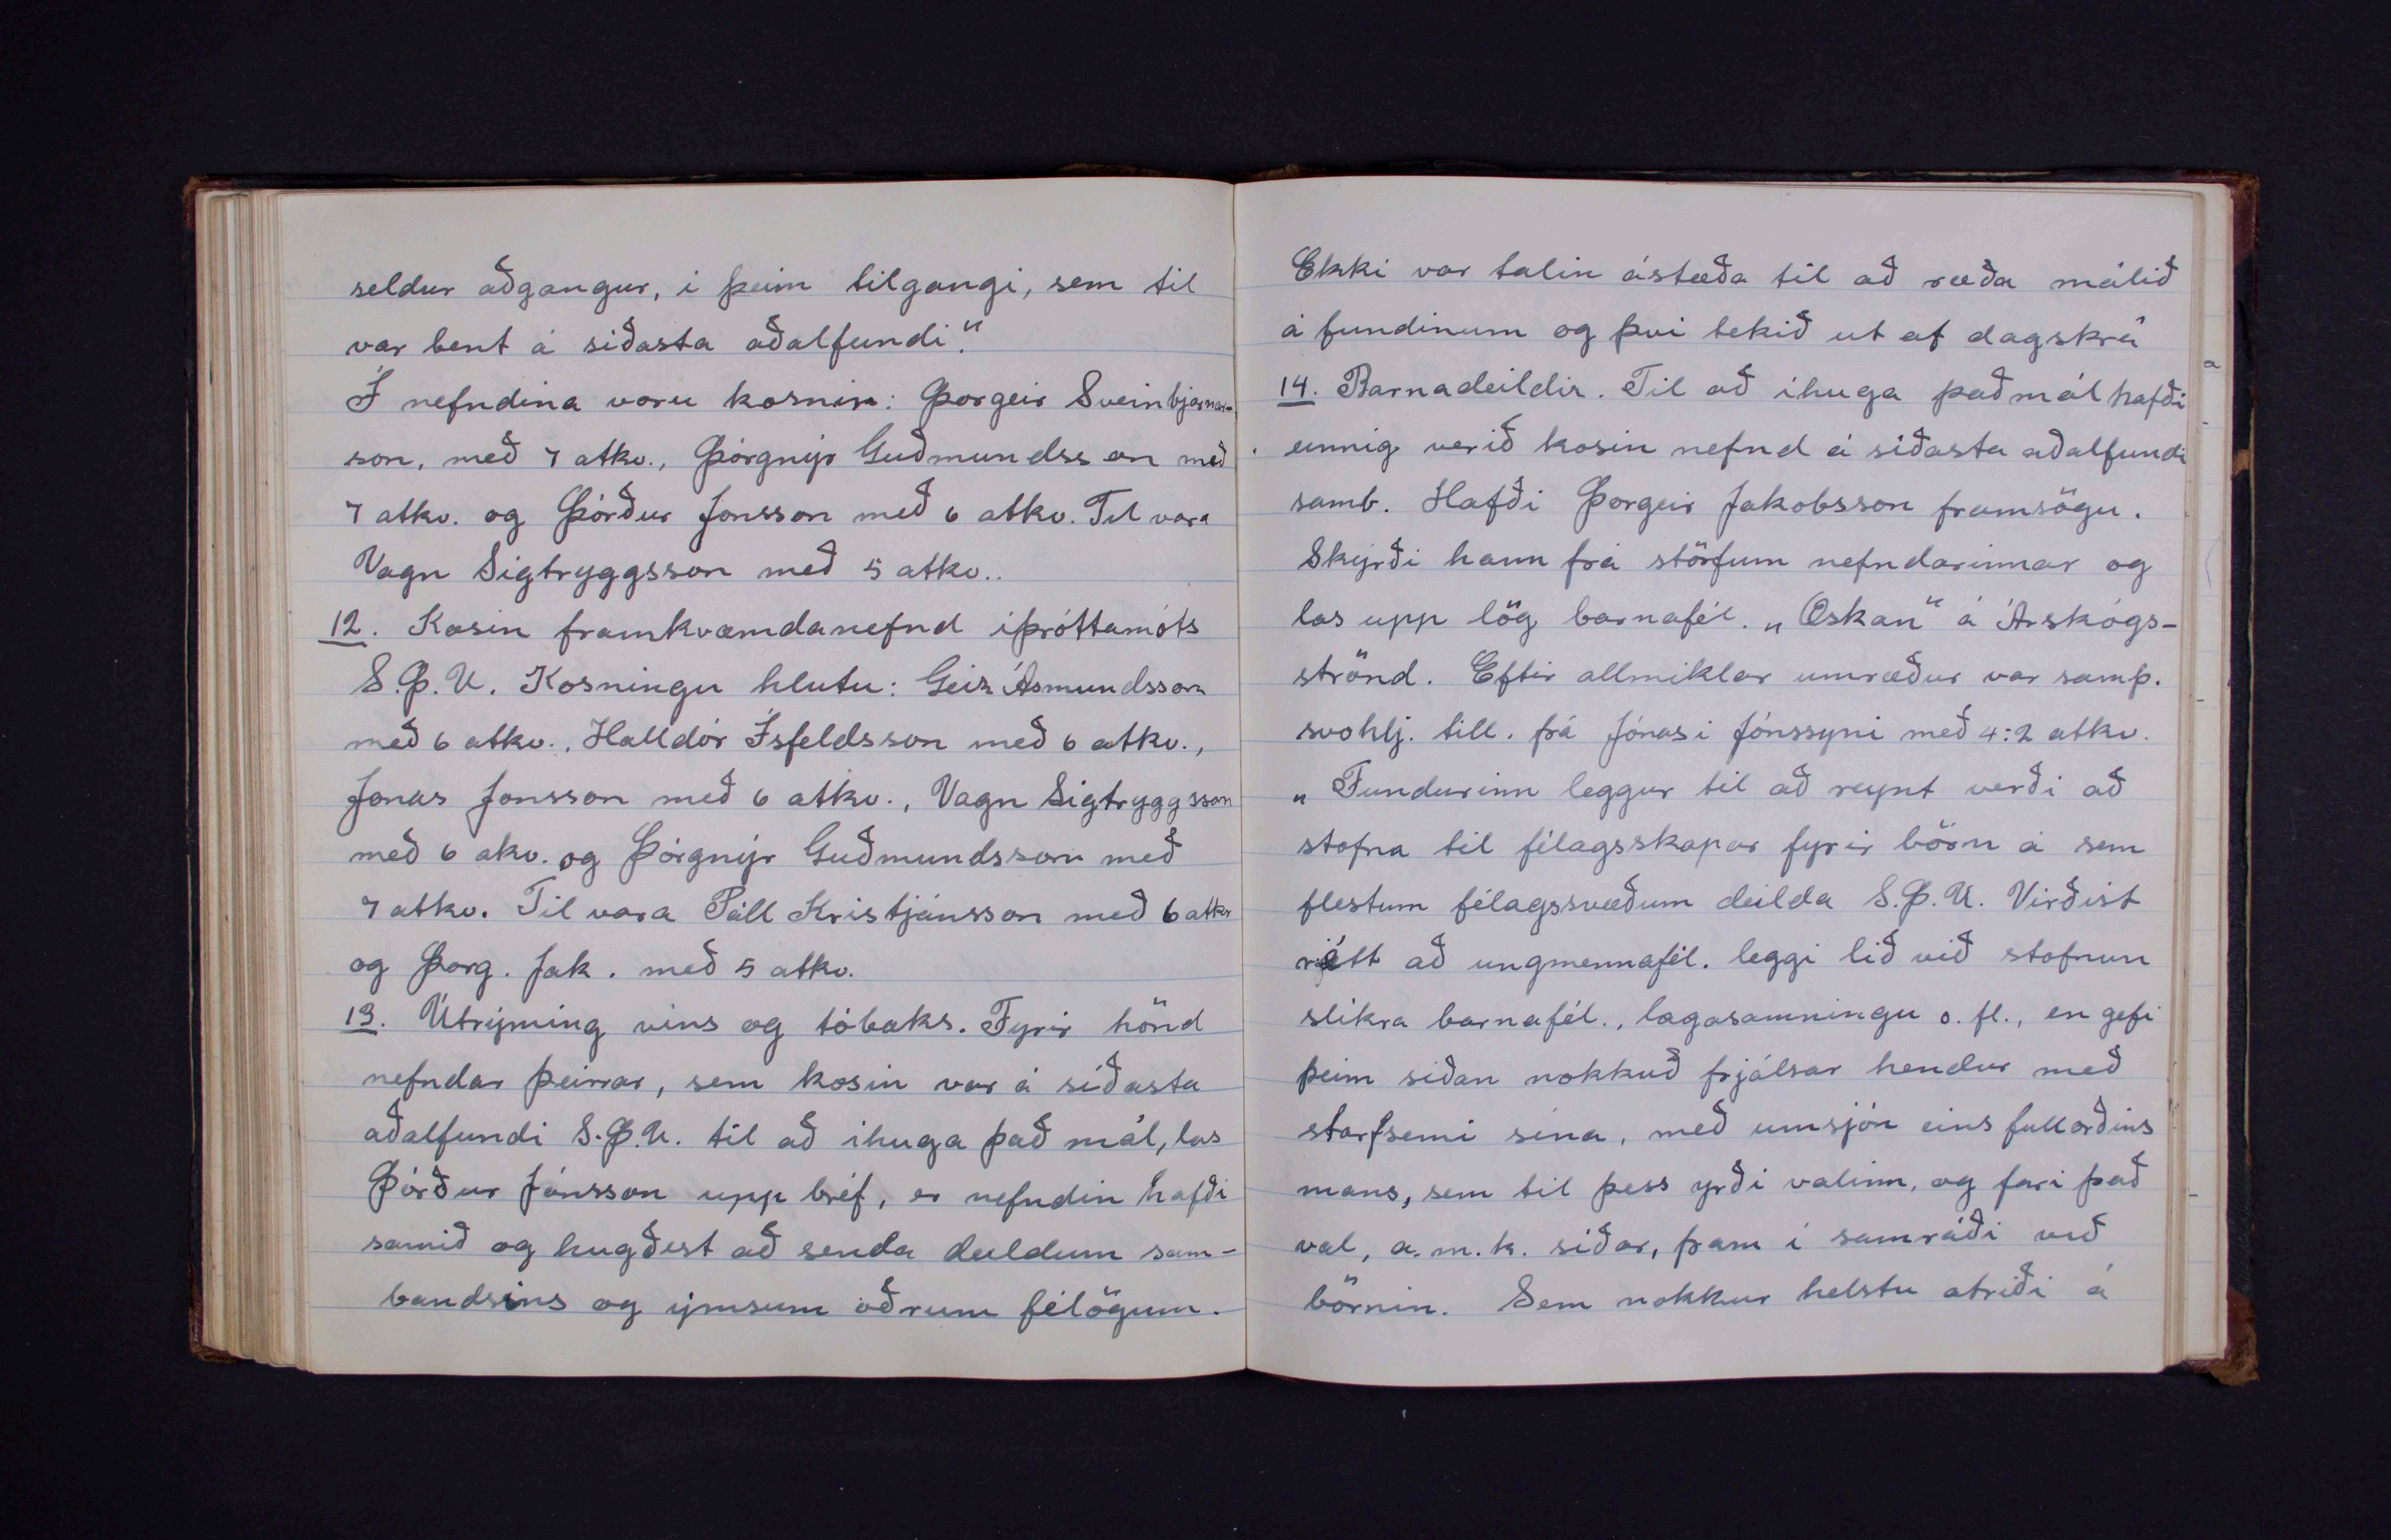 seldur aðgangur, í þeim tilgangi, sem til
var bent á síðasta aðalfundi."
Í nefndina voru kosnir: Þorgeir Sveinbjarnar-
son, með 7 atkv., Þórgnýr Guðmundsson með
7 atkv. og Þórður Jonsson með 6 atkv. Til vara
Vagn Sigtryggsson með 5 atkv..
12. Kosin framkvæmdanefnd íþróttamóts
S.Þ.U. Kosningu hlutu: Geir Ásmundsson
með 6 atkv., Halldór Ísfeldsson með 6 atkv.,
Jonas Jonsson með 6 atkv., Vagn Sigtryggsson
með 6 akv. og Þórgnýr Guðmundsson með
7 atkv. Til vara Páll Kristjánsson með 6 atkv
og Þorg. Jak. með 5 atkv.
13. Útrýming víns og tóbaks. Fyrir hönd
nefndar þeirrar, sem kosin var á síðasta
aðalfundi S.Þ.U. til að íhuga það mál, las
Þórður Jónsson upp bréf, er nefndin hafði
samið og hugðist að senda deildum sam-
bandsins og ýmsum öðrum félögum.
Ekki var talin ástæða til að ræða málið
á fundinum og því tekið út af dagskrá
14. Barnadeildir. Til að íhuga það mál hafði
einnig verið kosin nefnd á síðasta aðalfundi
samb. Hafði Þorgeir Jakobsson framsögu.
Skýrði hann frá störfum nefndarinnar og
las upp lög barnafél. „Oskan" á Árskógs-
strönd. Eftir allmiklar umræður var samþ.
svohlj. till. frá Jónasi Jónssyni með 4:2 atkv.
„Fundurinn leggur til að reynt verði að
stofna til félagsskapar fyrir börn á sem
flestum félagssvæðum deilda S.Þ.U. Virðist
rétt að ungmennafél. leggi lið við stofnun
slíkra barnafél., lagasamningu o. fl., en gefi
þeim síðan nokkuð frjálsar hendur með
starfsemi sína, með umsjón eins fullorðins
mans, sem til þess yrði valinn, og fari það
val, a. m. k. síðar, fram í samráði við
börnin. Sem nokkur helstu atriði á